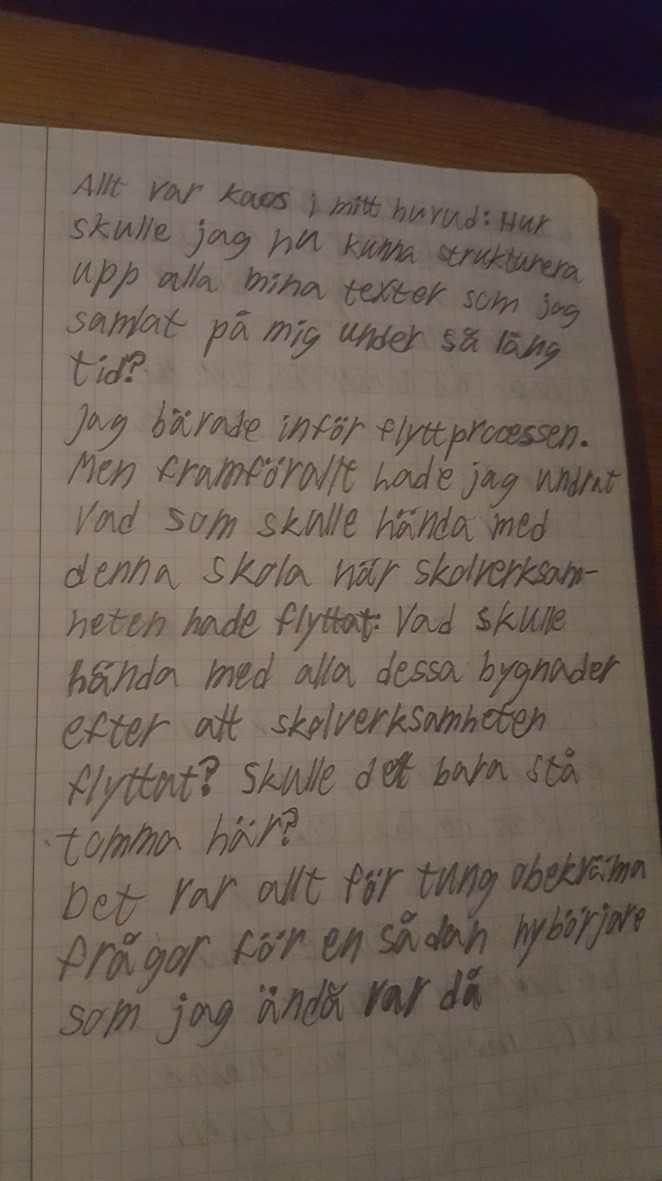 Allt var kaos i mitt huvud: Hur
skulle jag nu kunna strukturera
upp alla mina texter som jag
samlat på mig under så lång
tid?
Jag bävade inför flyttprocessen.
Men framförallt hade jag undrat
Vad som skulle hända med
denna skola när skolverksam-
heten hade flyttat: Vad skulle
hända med alla dessa bygnader
efter att skolverksamheten
flyttat? Skulle det bara stå
tomma här?
Det var allt för tung obekväma
frågor för en sådan nybörjare
som jag ändå var då